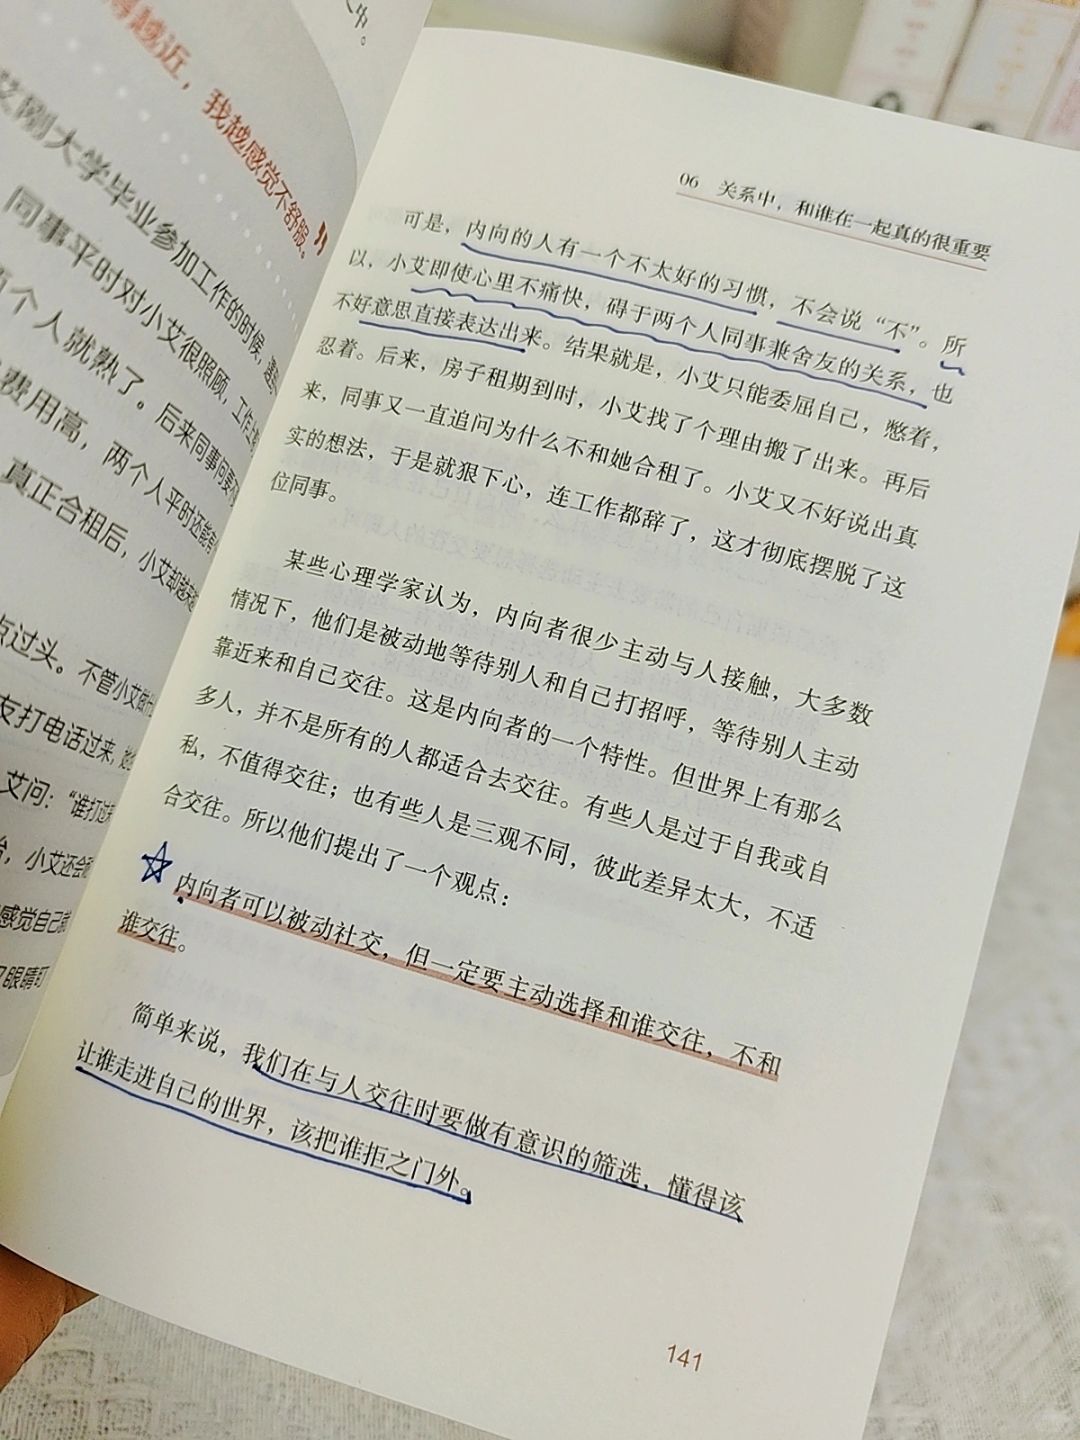 人中。
得越近，我越感觉不舒服。”
艾刚大学毕业参加工作的时候，
同事平时对小艾很照顾，工作
两个人就熟了。后来同事问要
费用高，两个人平时还能
真正合租后，小艾却
点过头。不管小艾做什
友打电话过来，
艾问：“谁打过
，小艾还会
感觉自己
眼睛盯
06 关系中，和谁在一起真的很重要
可是，内向的人有一个不太好的习惯，不会说“不”。所
以，小艾即使心里不痛快，碍于两个人同事兼舍友的关系，也
不好意思直接表达出来。结果就是，小艾只能委屈自己，憋着，
忍着。后来，房子租期到时，小艾找了个理由搬了出来。再后
来，同事又一直追问为什么不和她合租了。小艾又不好说出真
实的想法，于是就狠下心，连工作都辞了，这才彻底摆脱了这
位同事。
某些心理学家认为，内向者很少主动与人接触，大多数
情况下，他们是被动地等待别人和自己打招呼，等待别人主动
靠近来和自己交往。这是内向者的一个特性。但世界上有那么
多人，并不是所有的人都适合去交往。有些人是过于自我或自
私，不值得交往；也有些人是三观不同，彼此差异太大，不适
合交往。所以他们提出了一个观点：
内向者可以被动社交，但一定要主动选择和谁交往，不和
谁交往。
简单来说，我们在与人交往时要做有意识的筛选，懂得该
让谁走进自己的世界，该把谁拒之门外。
141